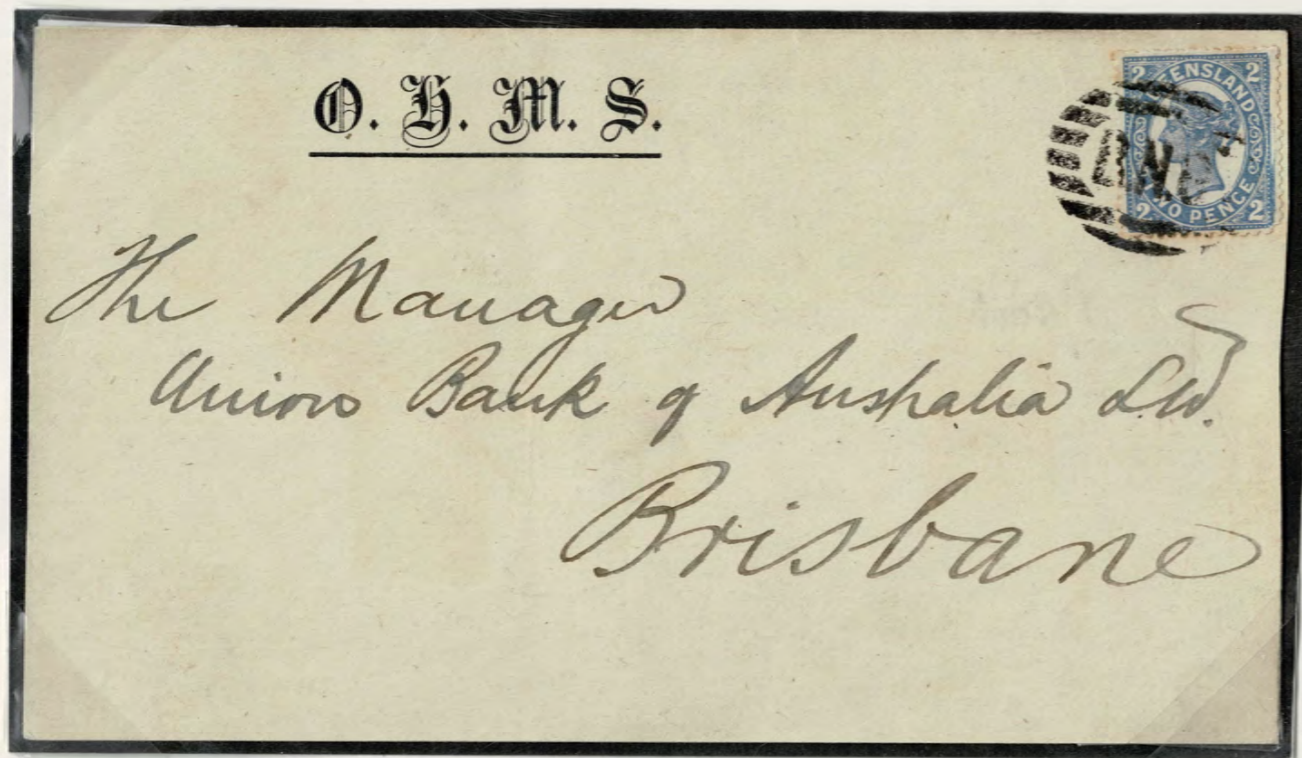 O. H. M. S.
2 QUEENSLAND 2
2 TWO PENCE 2
The Manager
Union Bank of Australia Ltd.
Brisbane